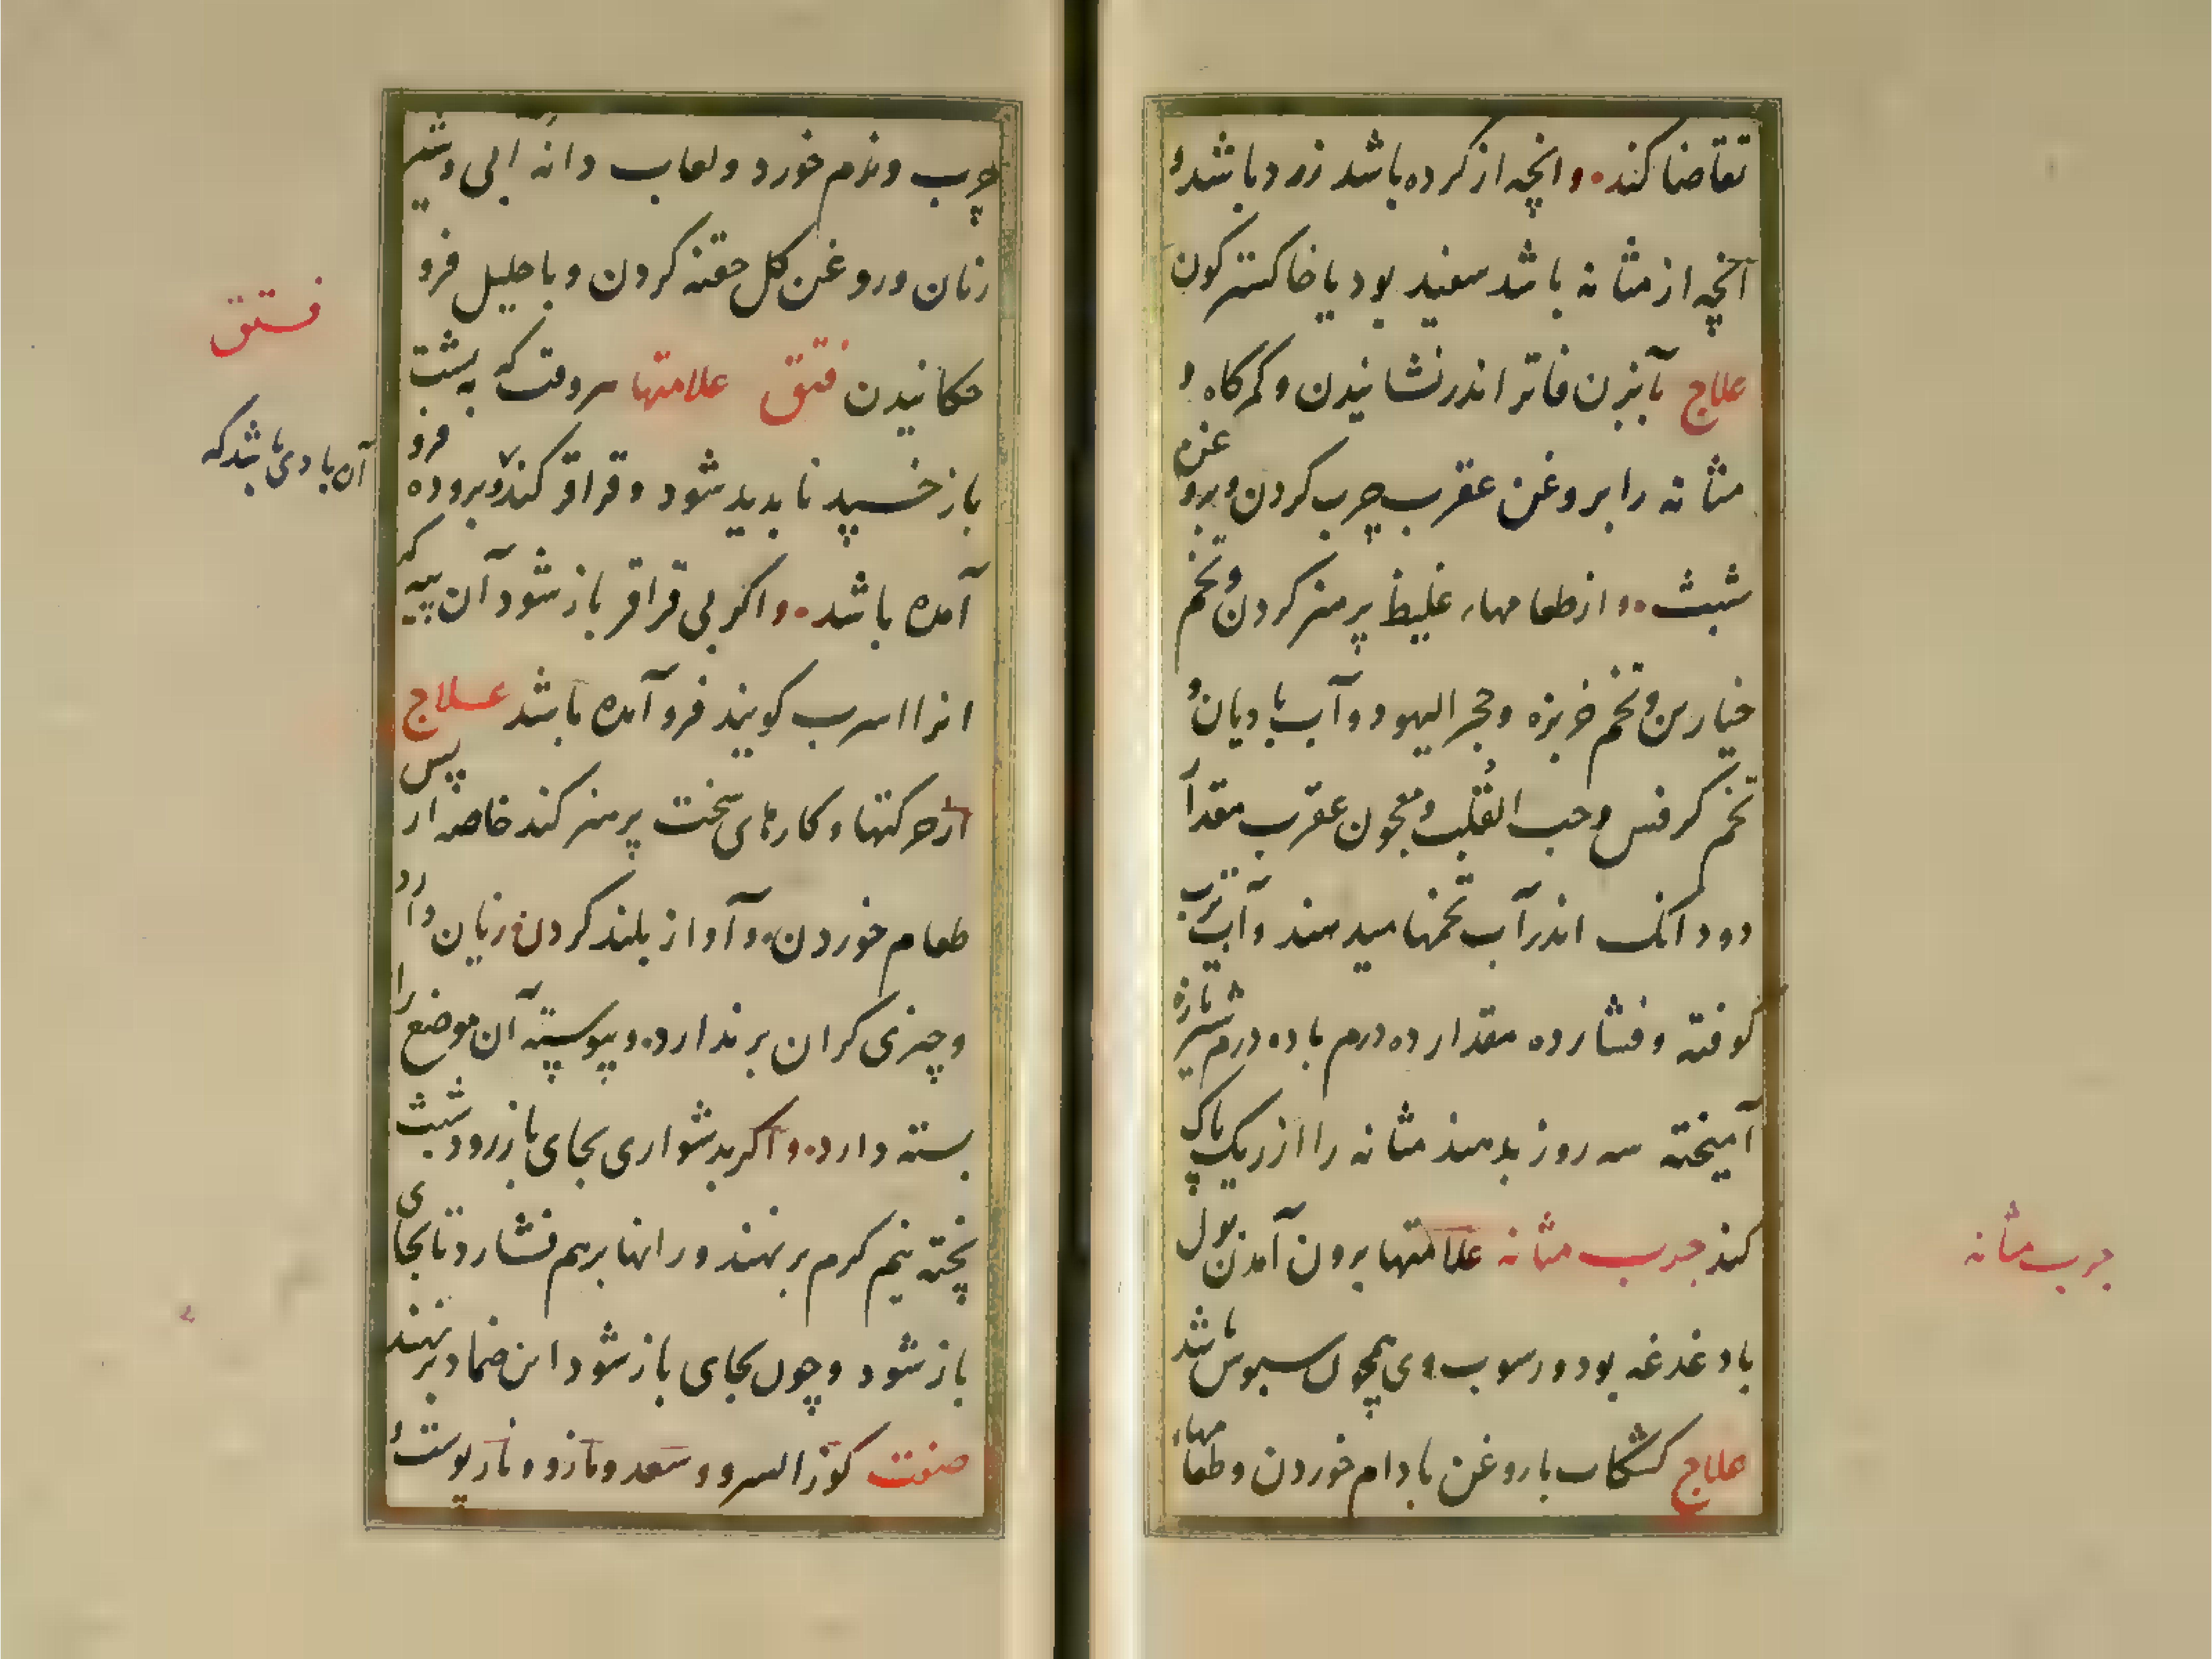 تقاضا کند. وانچه از کرده باشد زرد باشد و
آنچه از مثانه باشد سفید بود یا خاکسترکون
علاج بآبزن فاتر اندر نشانیدن و کمرکاه و
مثانه را بروغن عقرب چرب کردن وبروغن
شبث. واز طعامهاء غلیظ پرهیز کردن وتخم
خیارین وتخم خربزه وحجر الیهود وآب بادیان و
تخم کرفس وحب القلب ومعجون عقرب مقدار
دودانک اندر آب تخمها میدهند وآب ترب
کوفته وفشارده مقدار ده درم باده درم شیر تازه
آمیخته سه روز بدهند مثانه را از ریک پاک
کند جرب مثانه علامتها برون آمدن بول
بادغدغه بود ورسوب وی همچون سبوس باشد
علاج کشکاب باروغن بادام خوردن وطعامهاء
جرب مثانه
چرب ونرم خورد ولعاب دانه آبی وشیر
زنان وروغن کل حقنه کردن وباحلیل فرو
چکانیدن فتق علامتها هروقت که به پشت
باز خسپد نابدید شود وقراقر کند وبروده فرو
آمده باشد. واکر بی قراقر باز شود آن پیه که
انرا اسرب کویند فرو آمده باشد علاج
از حرکتها وکارهای سخت پرهیز کند خاصه از پس
طعام خوردن. وآواز بلند کردن زیان دارد
وچیزی کران برندارد. وپیوسته آن موضع را
بسته دارد. واکر بدشواری بجای باز رود شبث
پخته نیم کرم برنهند ورانها برهم فشارد تا بجای
باز شود وچون بجای باز شود این ضماد برنهند
صفت کوز السرو وسعد ومازو ونار پوست و
فتق
آن بادی باشد که